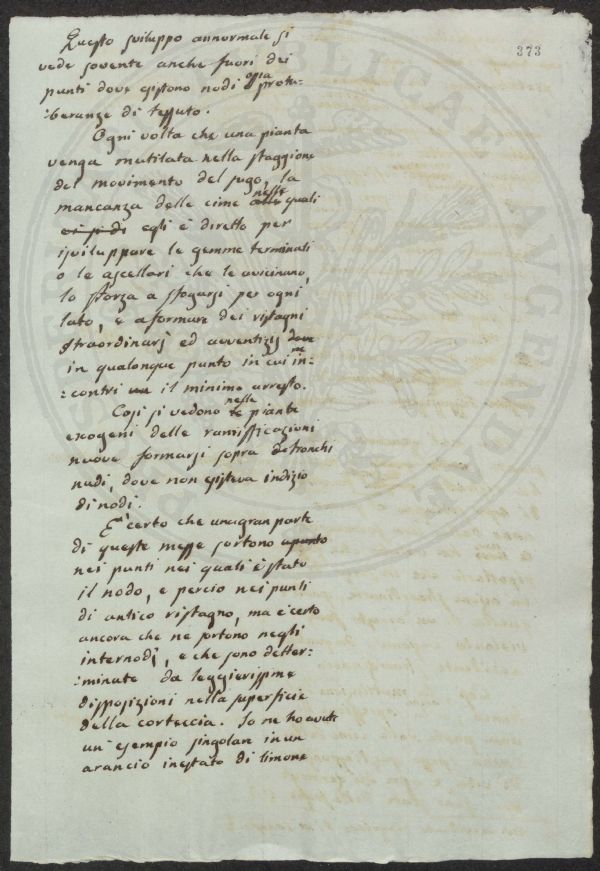 373
Questo sviluppo annormale si
vede sovente anche fuori dei
punti dove esistono nodi ossia protu-
:beranze di tessuto.
Ogni volta che una pianta
venga mutilata nella staggione
del movimento del sugo, la
mancanza delle cime alle nelle quali
egli è diretto per
isviluppare le gemme terminali
o le ascellari che le avvicinano,
lo sforza a sfogarsi per ogni
lato, e a formare dei ristagni
straordinarj ed avventizj dove
in qualonque punto in cui ne in-
:contri un il minimo arresto.
Così si vedono le nelle piante
exogeni delle ramificazioni
nuove formarsi sopra de tronchi
nudi, dove non esisteva indizio
di nodi.
E' certo che una gran parte
di queste messe sortono apunto
nei punti nei quali è stato
il nodo, e percio nei punti
di antico ristagno, ma è certo
ancora che ne sortono negli
internodj, e che sono detter-
:minate da leggierissime
disposizioni nella superficie
della corteccia. Io ne ho avuto
un esempio singolare in un
arancio inestato di limone